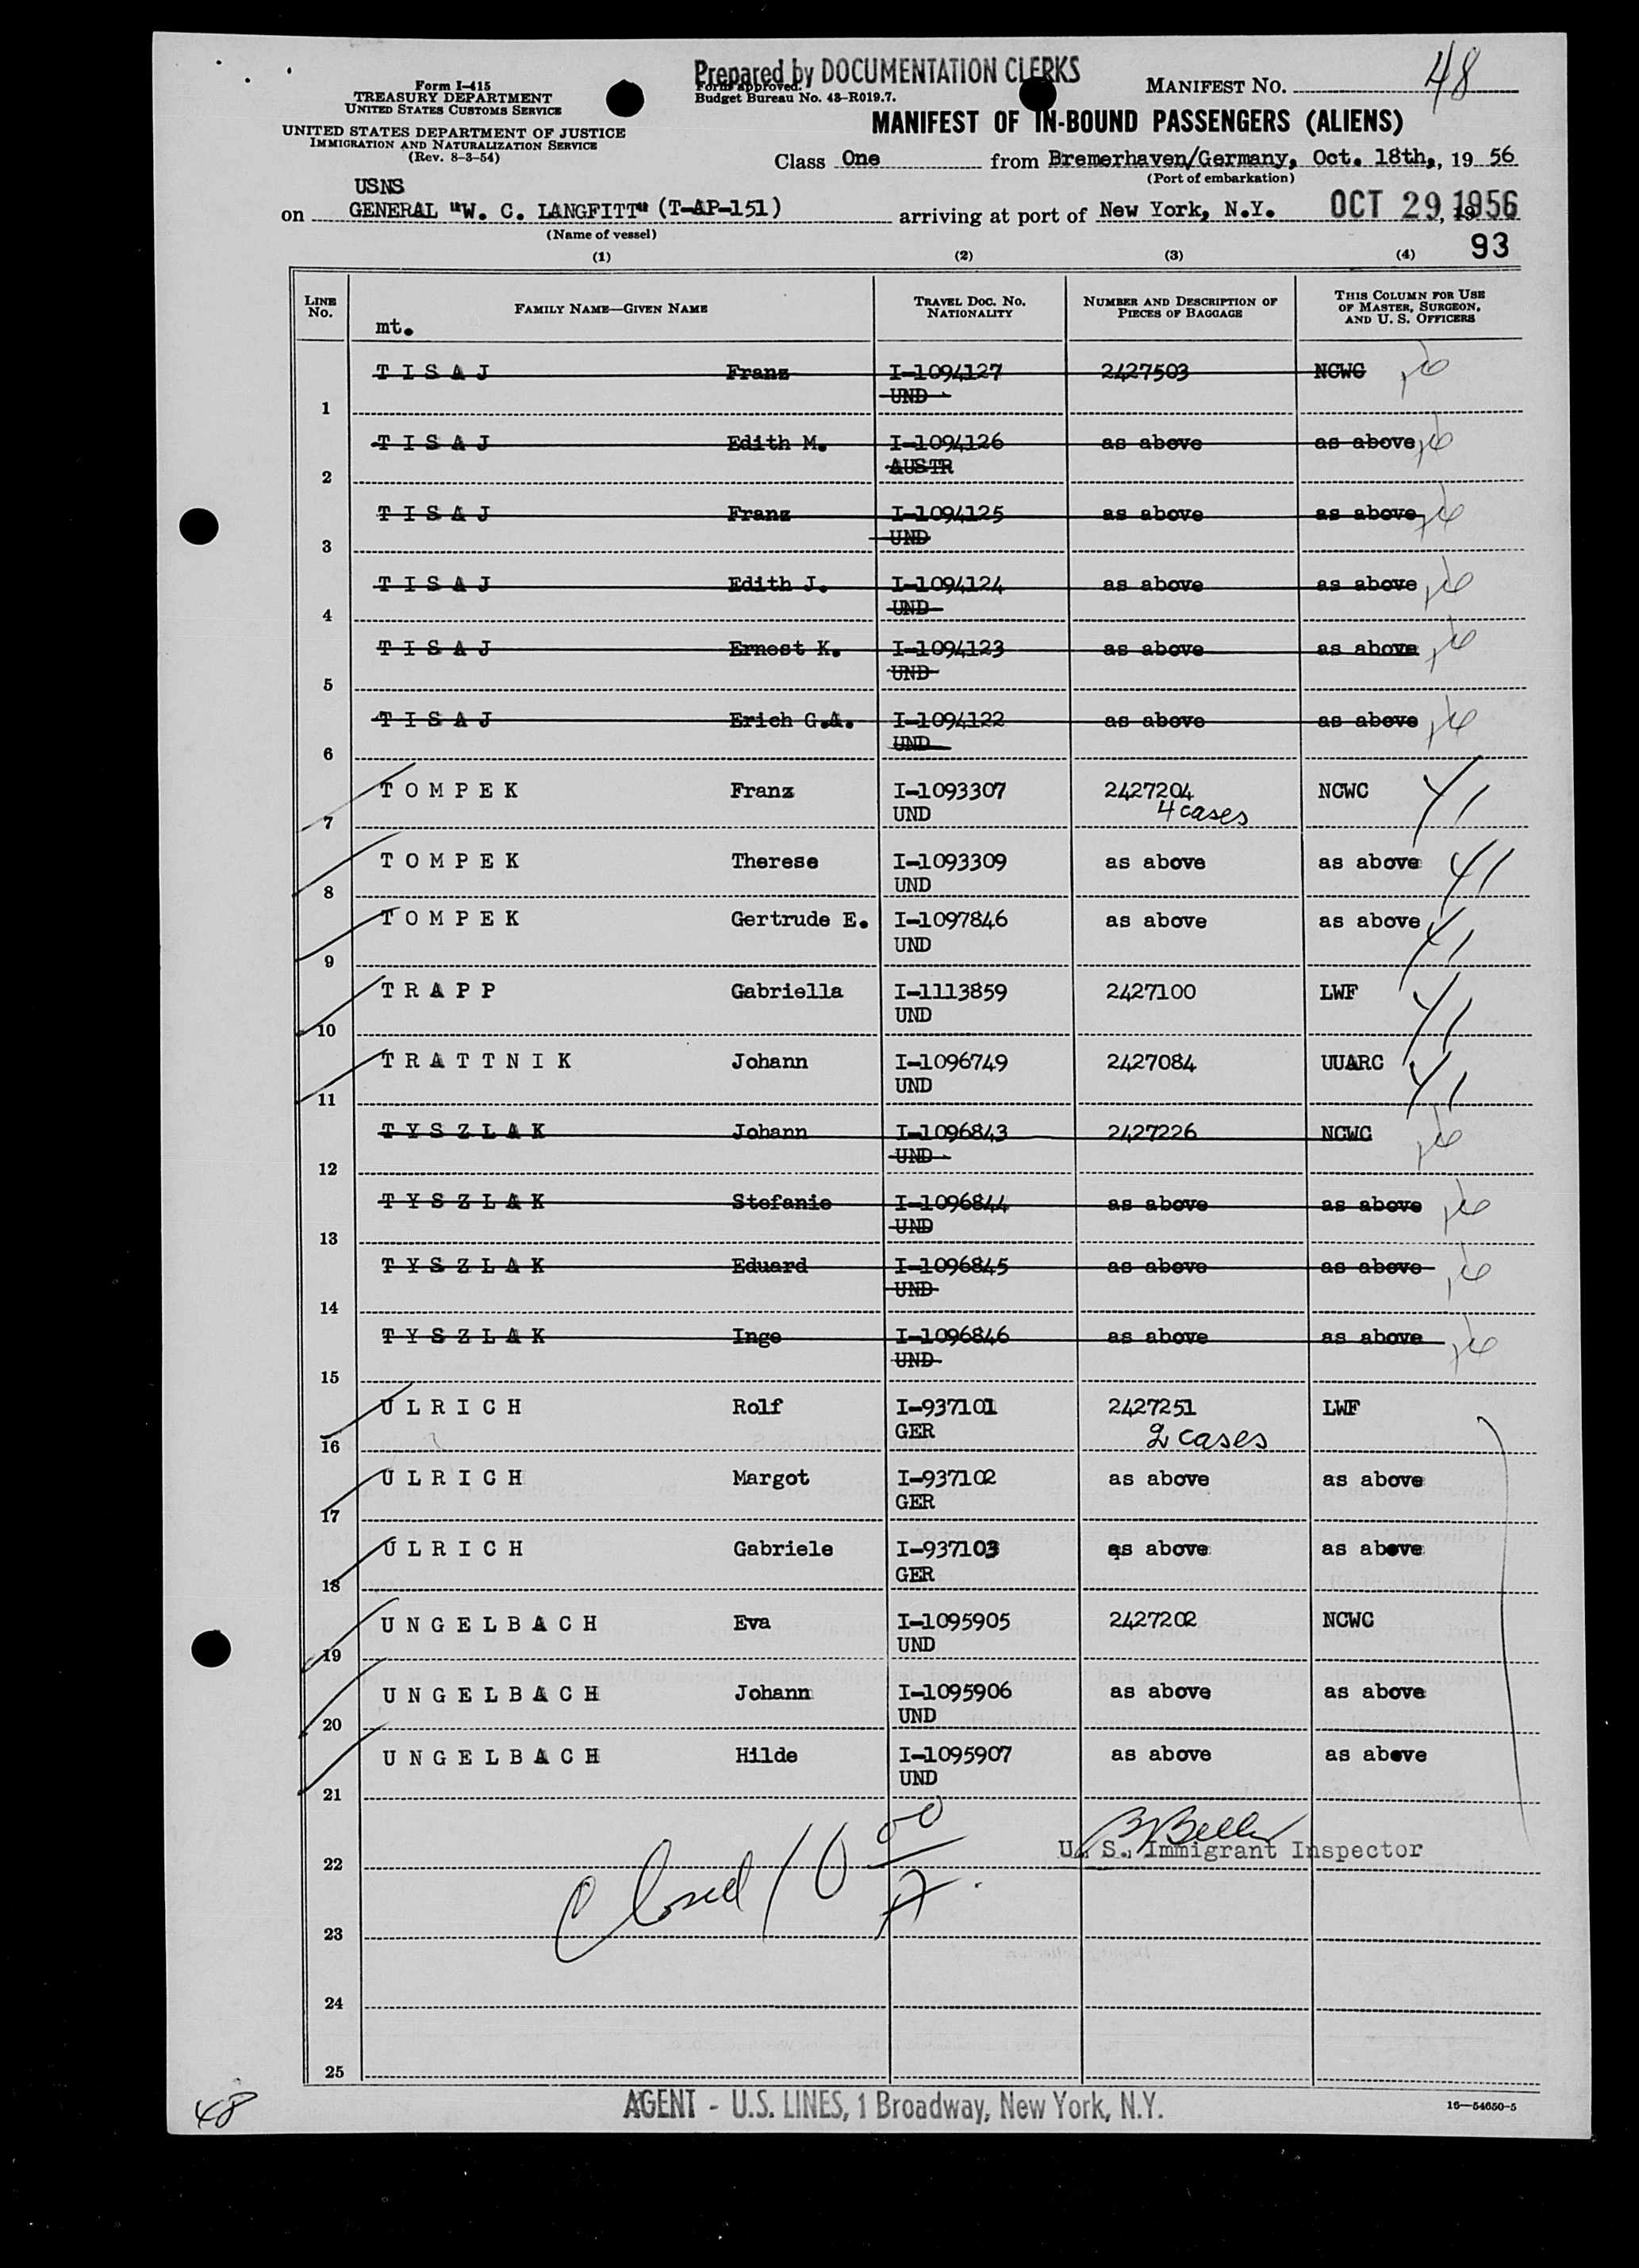 Prepared by DOCUMENTATION CLERKS
Form approved.
Budget Bureau No. 43-R019.7.
Form I-415
TREASURY DEPARTMENT
UNITED STATES CUSTOMS SERVICE
UNITED STATES DEPARTMENT OF JUSTICE
IMMIGRATION AND NATURALIZATION SERVICE
(Rev. 8-3-54)
MANIFEST NO. 48
MANIFEST OF IN-BOUND PASSENGERS (ALIENS)
Class One from Bremerhaven/Germany, Oct. 18th,, 19 56
(Port of embarkation)
USNS
on GENERAL "W. C. LANGFITT" (T-AP-151) arriving at port of New York, N.Y. OCT 29, 1956
(Name of vessel)
93
(1) (2) (3) (4)
LINE No. FAMILY NAME—GIVEN NAME TRAVEL DOC. NO. NATIONALITY NUMBER AND DESCRIPTION OF PIECES OF BAGGAGE THIS COLUMN FOR USE OF MASTER, SURGEON, AND U. S. OFFICERS
mt.
1 T I S A J Franz I-1094127 2427503 NCWC
UND
2 T I S A J Edith M. I-1094126 as above as above
AUSTR
3 T I S A J Franz I-1094125 as above as above
UND
4 T I S A J Edith J. I-1094124 as above as above
UND
5 T I S A J Ernest K. I-1094123 as above as above
UND
6 T I S A J Erich G.A. I-1094122 as above as above
UND
7 T O M P E K Franz I-1093307 2427204 NCWC
UND 4 cases
8 T O M P E K Therese I-1093309 as above as above
UND
9 T O M P E K Gertrude E. I-1097846 as above as above
UND
10 T R A P P Gabriella I-1113859 2427100 LWF
UND
11 T R A T T N I K Johann I-1096749 2427084 UUARC
UND
12 T Y S Z L A K Johann I-1096843 2427226 NCWC
UND
13 T Y S Z L A K Stefanie I-1096844 as above as above
UND
14 T Y S Z L A K Eduard I-1096845 as above as above
UND
15 T Y S Z L A K Inge I-1096846 as above as above
UND
16 U L R I C H Rolf I-937101 2427251 LWF
GER 2 cases
17 U L R I C H Margot I-937102 as above as above
GER
18 U L R I C H Gabriele I-937103 as above as above
GER
19 U N G E L B A C H Eva I-1095905 2427202 NCWC
UND
20 U N G E L B A C H Johann I-1095906 as above as above
UND
21 U N G E L B A C H Hilde I-1095907 as above as above
UND
U. S. Immigrant Inspector
22
Closed 10 00
23
24
25
48
AGENT - U.S. LINES, 1 Broadway, New York, N.Y.
16—54650-5